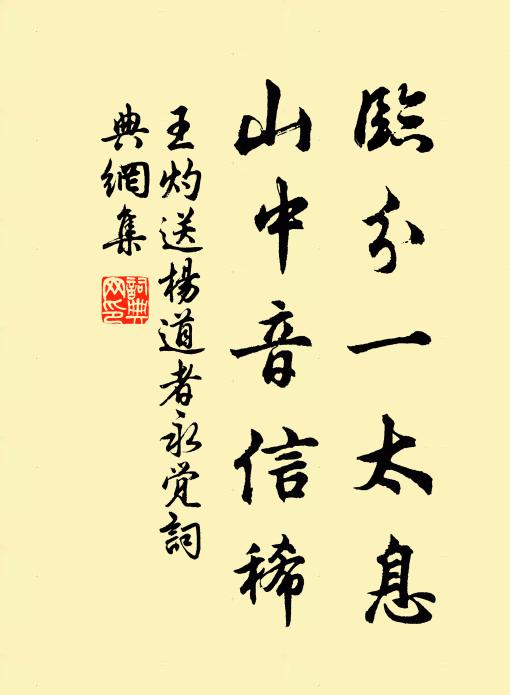 臨分一太息
山中音信稀
王灼送楊道者永覚詞
典網集
詞典
网印